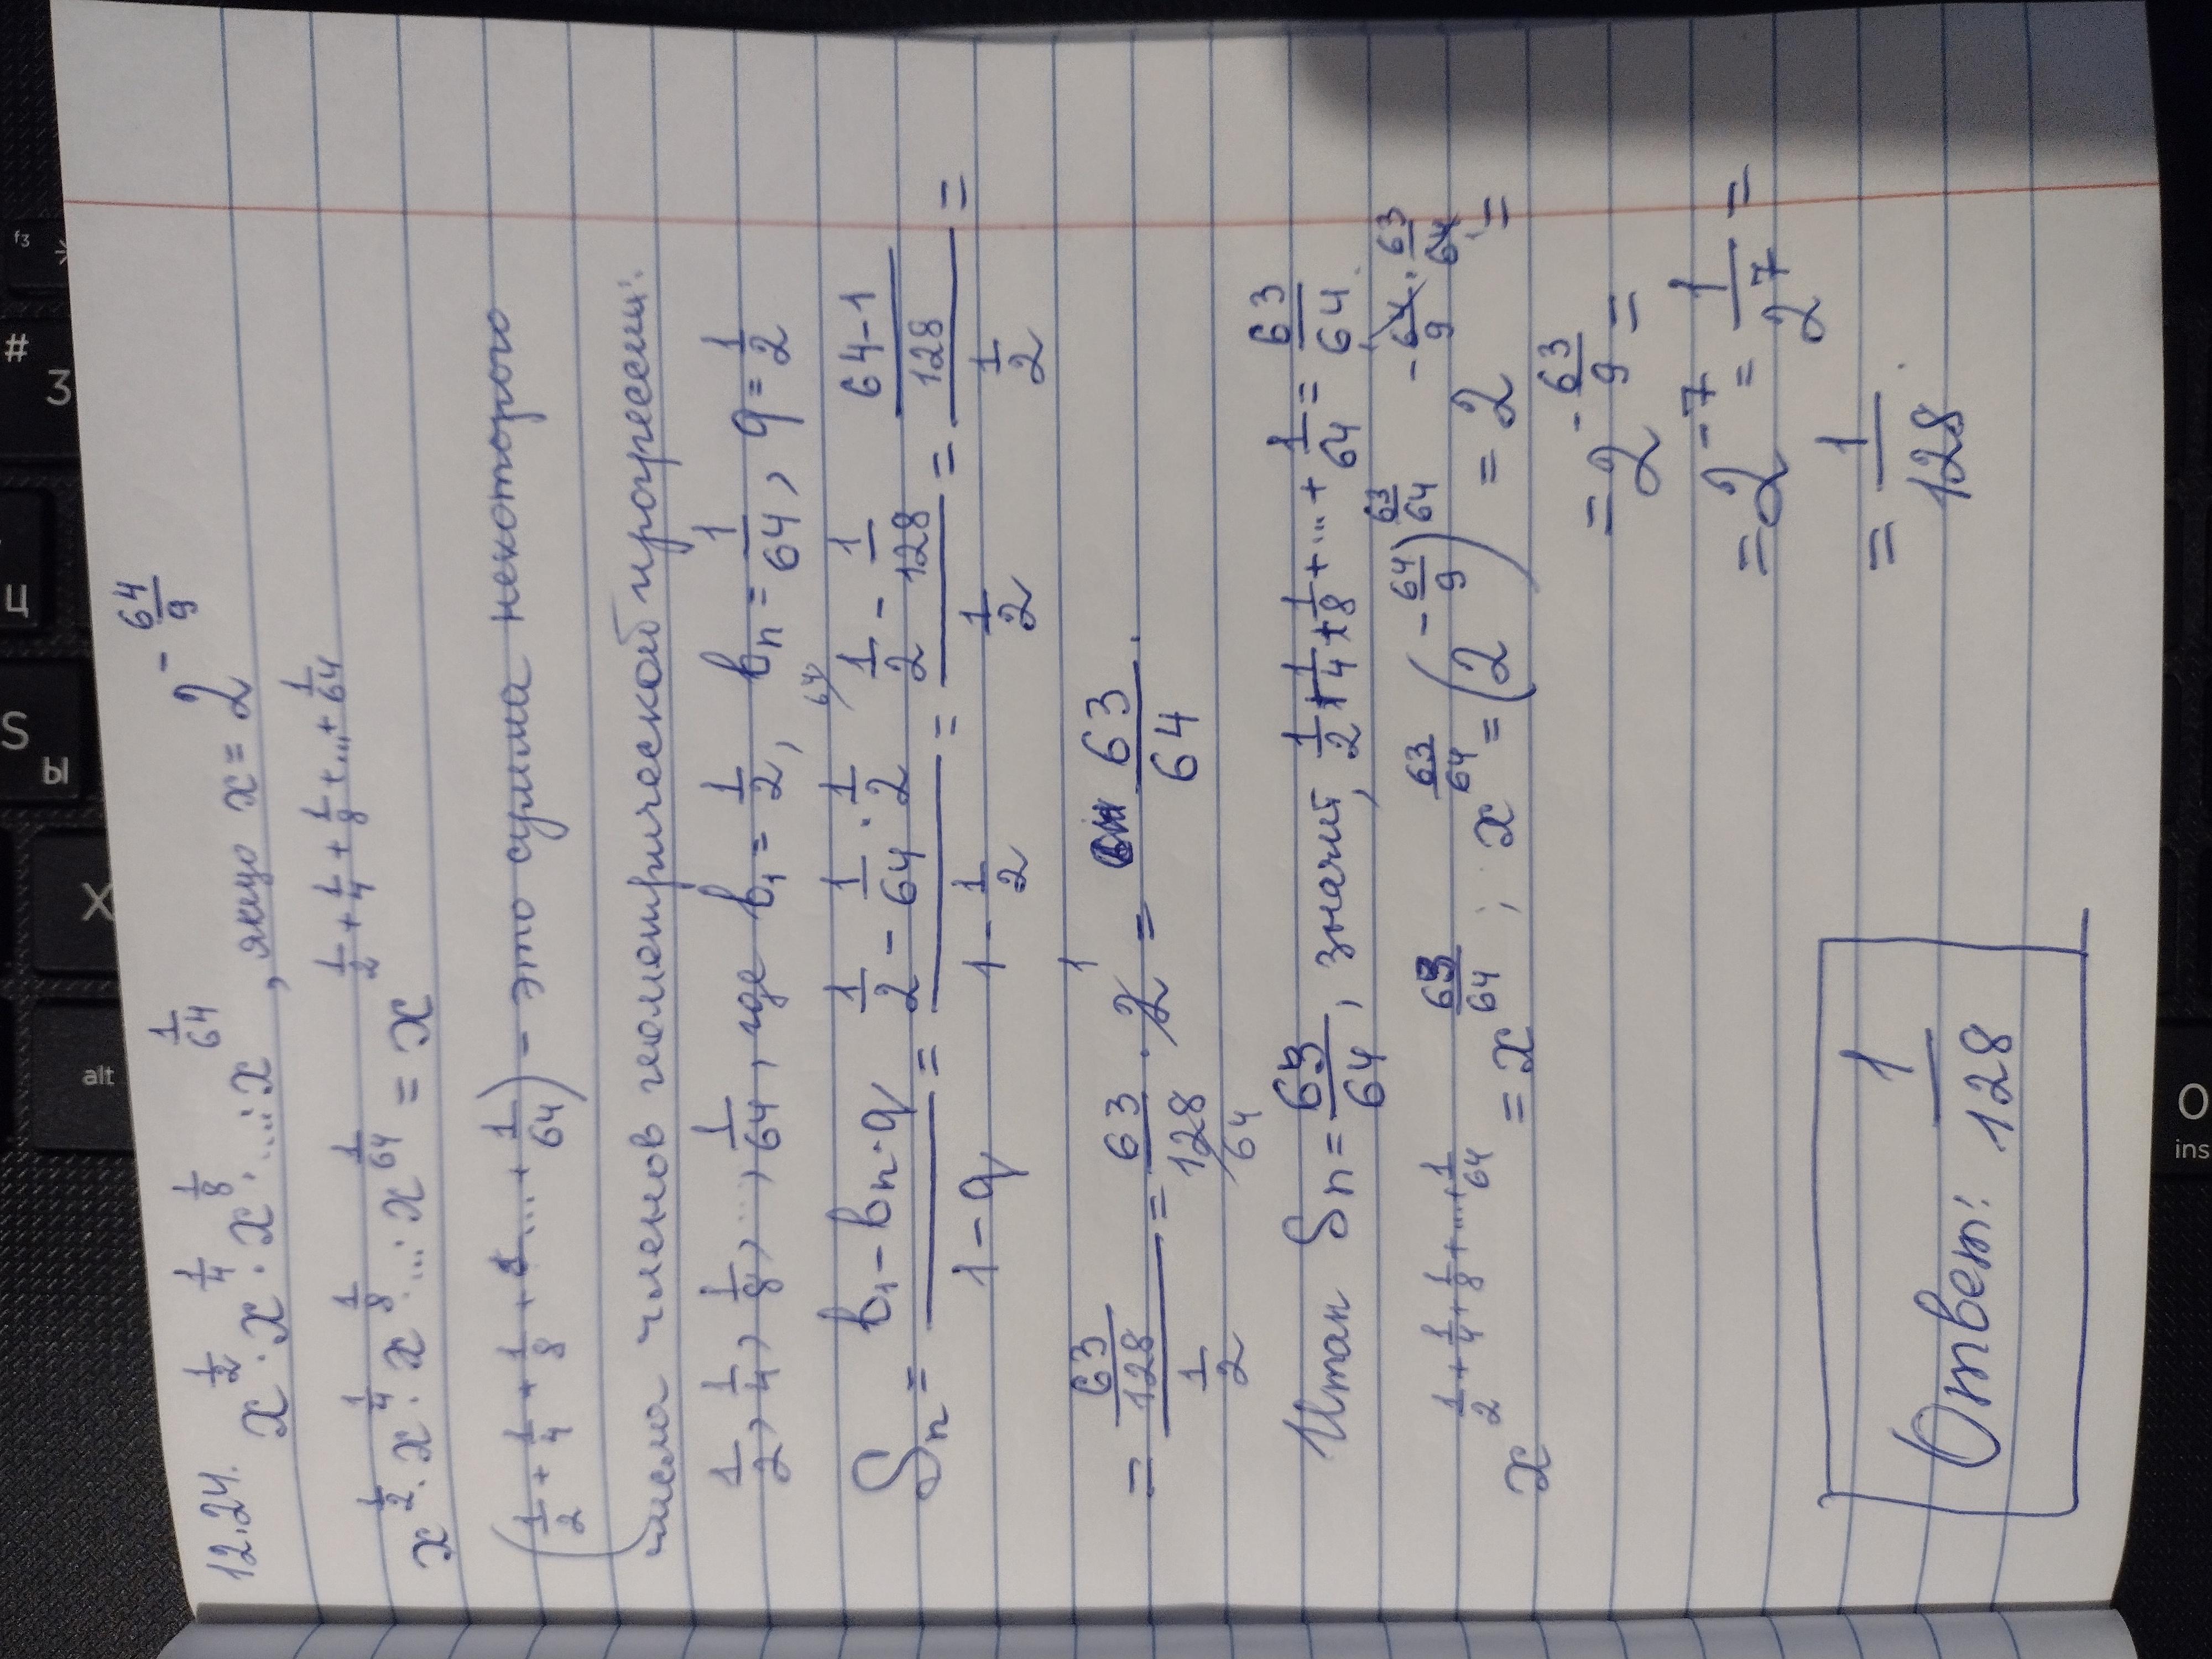 12.24. x^(1/2) · x^(1/4) · x^(1/8) · ... · x^(1/64), якщо x = 2^(-64/9)
x^(1/2) · x^(1/4) · x^(1/8) · ... · x^(1/64) = x^(1/2 + 1/4 + 1/8 + ... + 1/64)
(1/2 + 1/4 + 1/8 + ... + 1/64) – это сумма некоторого
числа членов геометрической прогрессии:
1/2, 1/4, 1/8, ..., 1/64, где b₁ = 1/2, bn = 1/64, q = 1/2
Sn = (b₁ - bn · q)/(1 - q) = (1/2 - 1/64 · 1/2)/(1 - 1/2) = (1/2 - 1/128)/(1/2) = ((64-1)/128)/(1/2) =
= (63/128)/(1/2) = 63/128 · 2 = 63/64.
Итак Sn = 63/64, значит, 1/2 + 1/4 + 1/8 + ... + 1/64 = 63/64.
x^(1/2 + 1/4 + 1/8 + ... + 1/64) = x^(63/64); x^(63/64) = (2^(-64/9))^(63/64) = 2^(-64/9 · 63/64) =
= 2^(-63/9) =
= 2^(-7) = 1/2^7 =
= 1/128.
Ответ: 1/128
f3
#
3
Ц
S
Ы
X
alt
O
ins